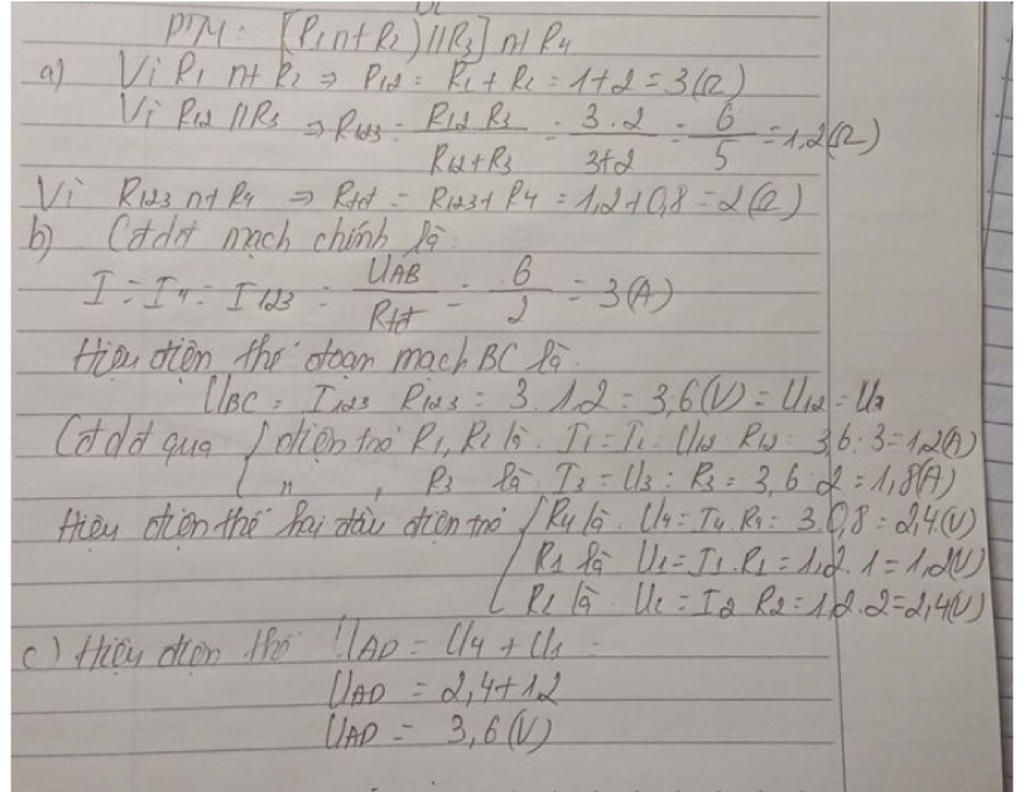 PTM: [R₁ nt R₂) // R₃] nt R₄
a) Vì R₁ nt R₂ ⇒ R₁₂ = R₁ + R₂ = 1 + 2 = 3 (Ω)
Vì R₁₂ // R₃ ⇒ R₁₂₃ = R₁₂ R₃ / R₁₂ + R₃ = 3.2 / 3+2 = 6 / 5 = 1,2 (Ω)
Vì R₁₂₃ nt R₄ ⇒ Rtđ = R₁₂₃ + R₄ = 1,2 + 0,8 = 2 (Ω)
b) Cđdđ mạch chính là:
I = I₄ = I₁₂₃ = UAB / Rtđ = 6 / 2 = 3 (A)
Hiệu điện thế đoạn mạch BC là.
UBC = I₁₂₃ R₁₂₃ = 3.1,2 = 3,6 (V) = U₁₂ = U₃
Cđdđ qua { điện trở R₁, R₂ là. I₁ = I₂ = U₁₂ : R₁₂ = 3,6 : 3 = 1,2 (A)
{ n , R₃ là I₃ = U₃ : R₃ = 3,6 : 2 = 1,8 (A)
Hiệu điện thế hai đầu điện trở { R₄ là. U₄ = I₄ . R₄ = 3.0,8 = 2,4 (V)
R₁ là U₁ = I₁ . R₁ = 1,2 . 1 = 1,2 (V)
R₂ là. U₂ = I₂ R₂ = 1,2 . 2 = 2,4 (V)
c) Hiệu điện thế UAD = U₄ + U₁ =
UAD = 2,4 + 1,2
UAD = 3,6 (V)